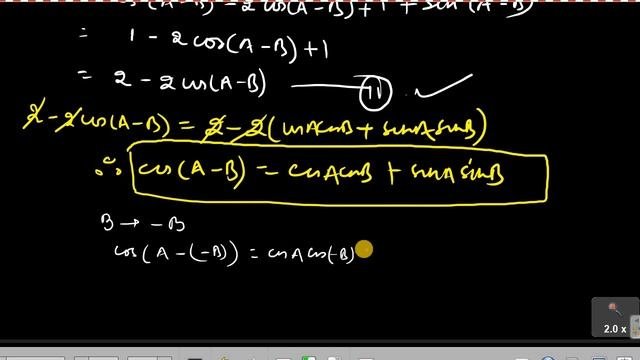 cos²(A-B) - 2cos(A-B) + 1 + sin²(A-B)
= 1 - 2cos(A-B) + 1
= 2 - 2cos(A-B) ——— (IV) ✓
2 - 2cos(A-B) = 2 - 2(cosAcosB + sinA sinB)
∴ cos(A-B) = cosAcosB + sinA sinB
B → -B
cos(A-(-B)) = cosAcos(-B)
2.0 x